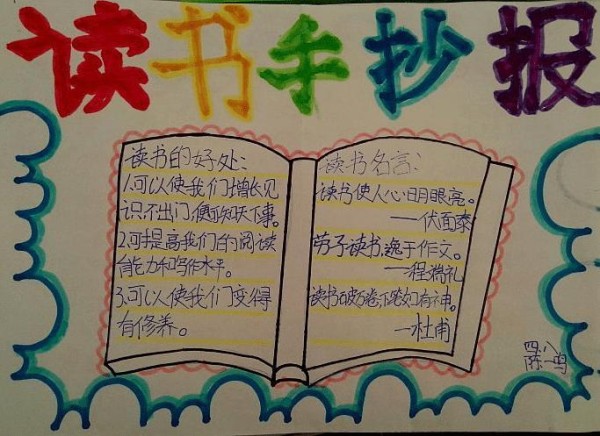 读书手抄报
读书的好处:
1.可以使我们增长见
识不出门,便可知天下事。
2.可提高我们的阅读
能力和写作水平。
3.可以使我们变得
有修养。
读书名言:
读书使人心明眼亮。
——伏面泰
劳于读书,逸于作文。
——程端礼
读书破万卷,下笔如有神。
—杜甫
四、八
陈一鸣